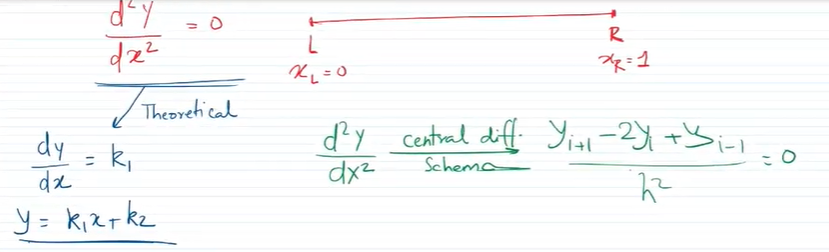 d²y/dx² = 0
L R
x_L = 0 x_R = 1
Theoretical
dy/dx = k₁
y = k₁x + k₂
d²y/dx² central diff. Schema (y_{i+1} - 2y_i + y_{i-1})/h² = 0